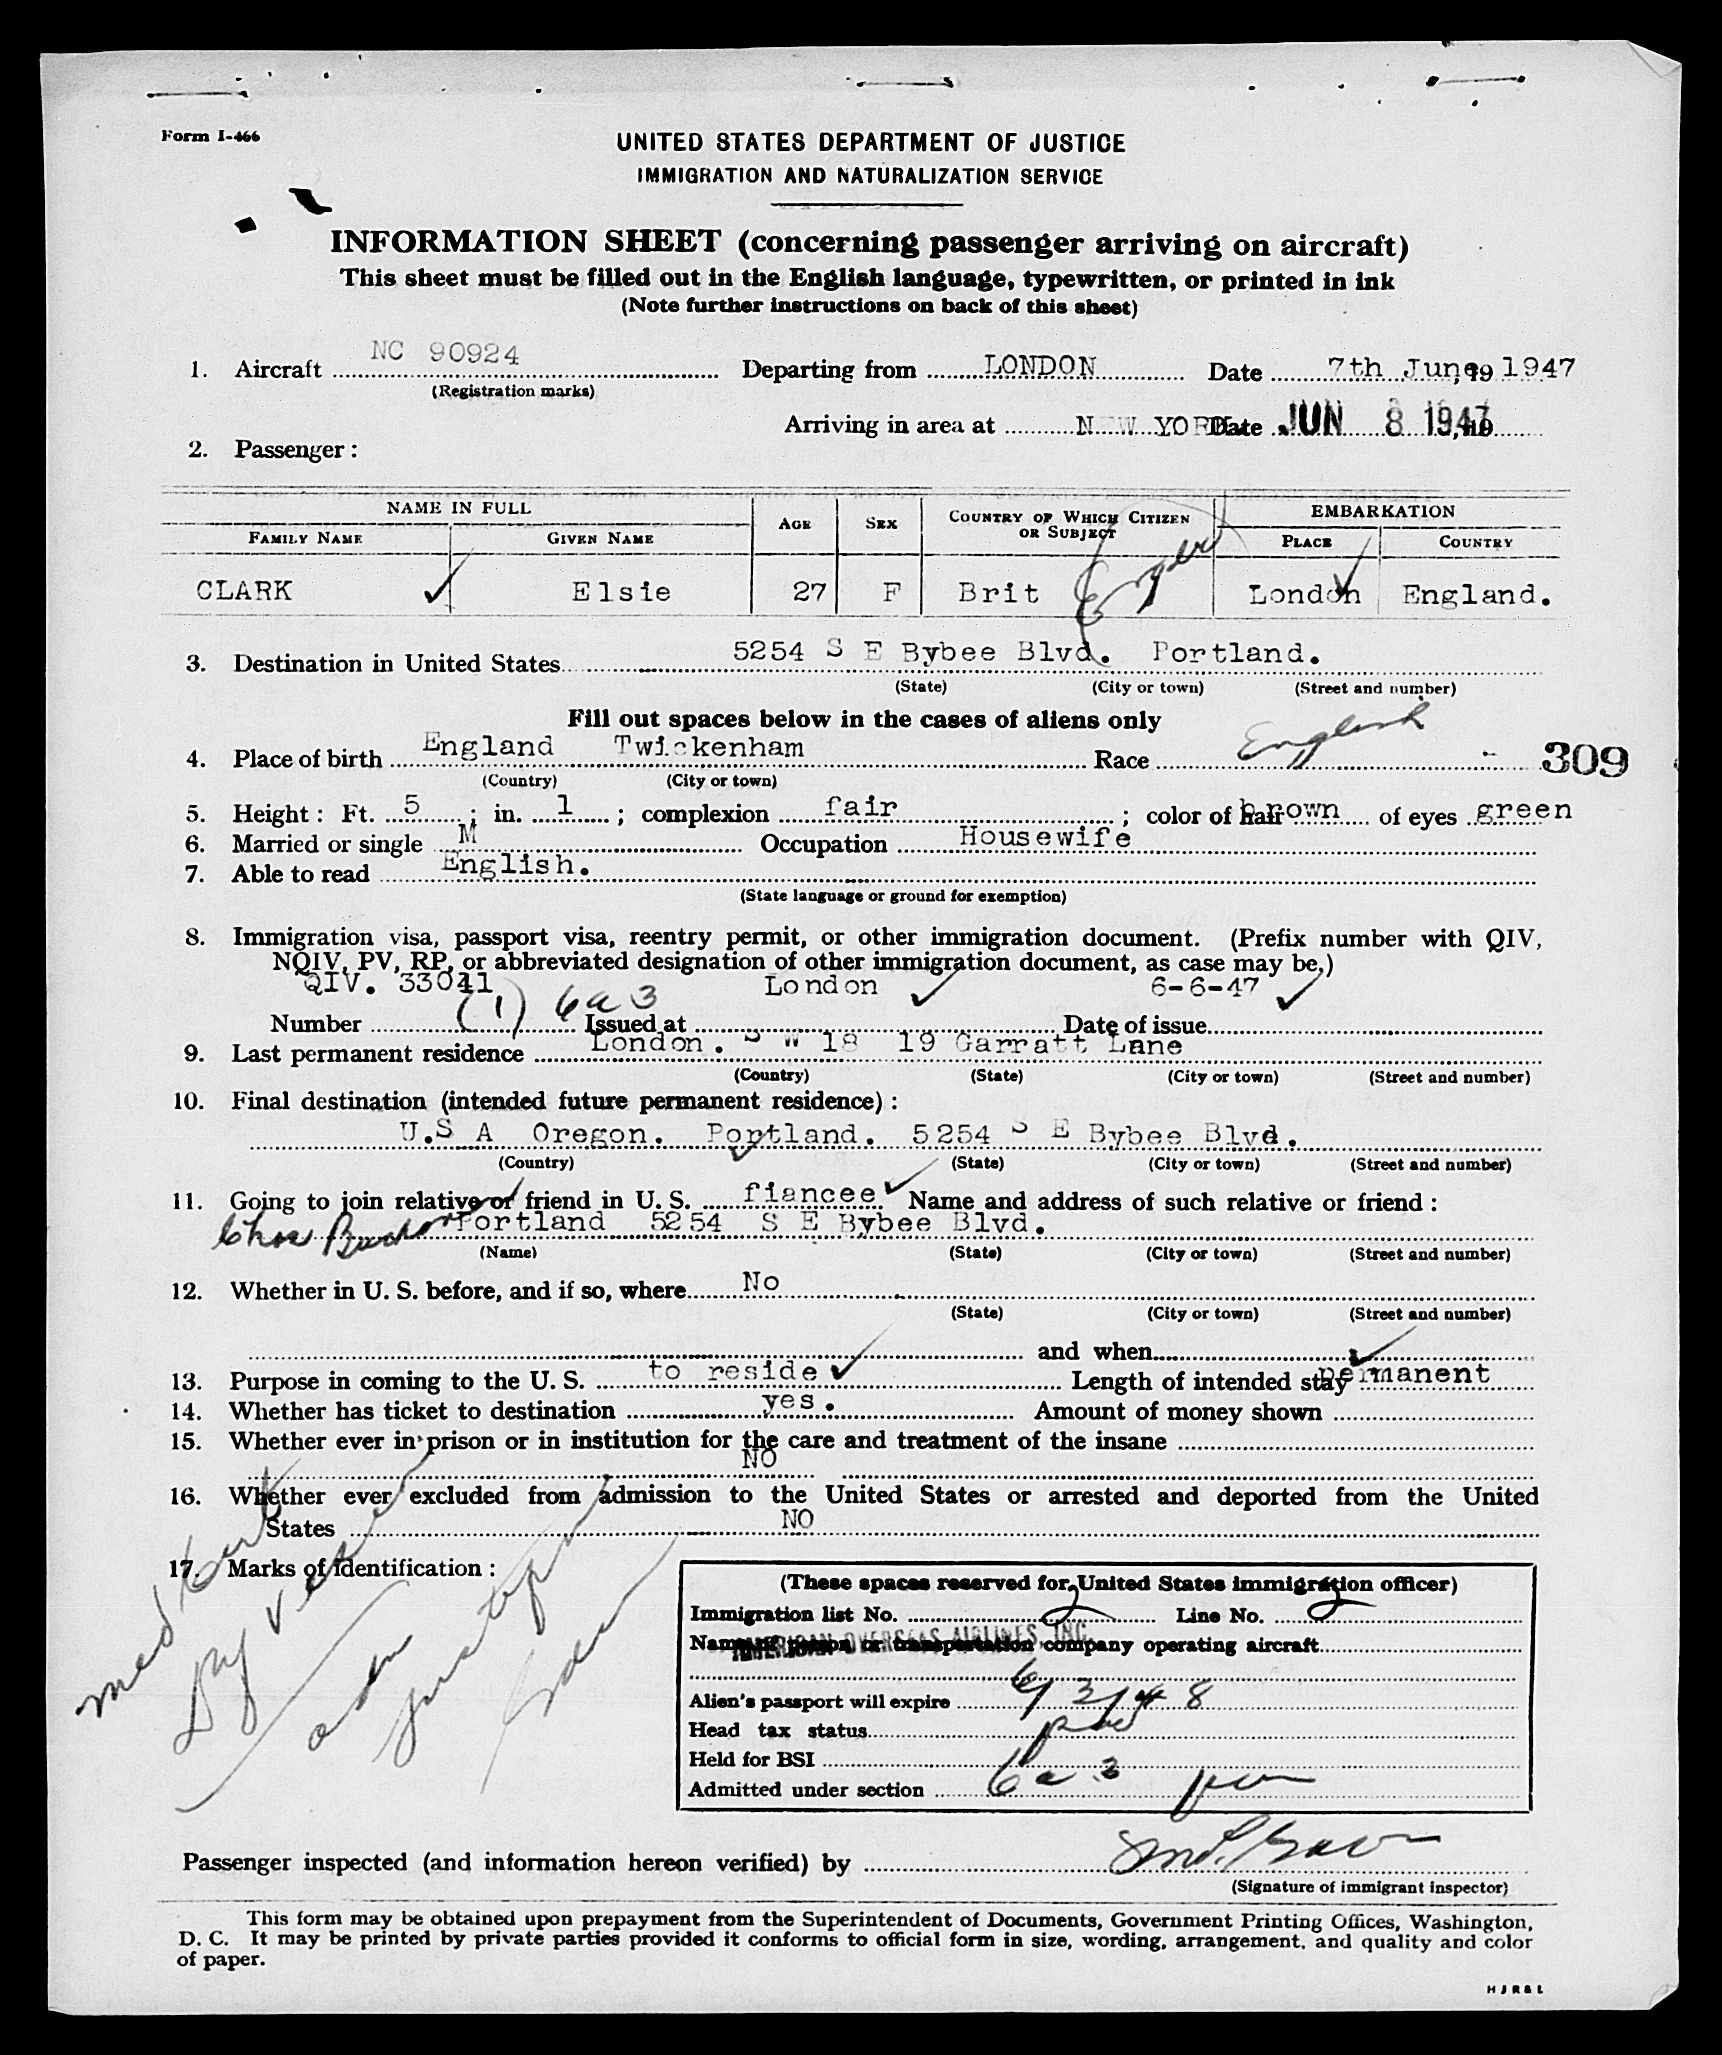 Form I-466
UNITED STATES DEPARTMENT OF JUSTICE
IMMIGRATION AND NATURALIZATION SERVICE
INFORMATION SHEET (concerning passenger arriving on aircraft)
This sheet must be filled out in the English language, typewritten, or printed in ink
(Note further instructions on back of this sheet)
1. Aircraft NC 90924 Departing from LONDON Date 7th June, 19 1947
(Registration marks)
Arriving in area at NEW YORK Date JUN 8 1947, 19
2. Passenger:
NAME IN FULL AGE SEX COUNTRY OF WHICH CITIZEN OR SUBJECT EMBARKATION
FAMILY NAME GIVEN NAME PLACE COUNTRY
CLARK Elsie 27 F Brit London England.
3. Destination in United States 5254 S E Bybee Blvd. Portland.
(State) (City or town) (Street and number)
Fill out spaces below in the cases of aliens only
4. Place of birth England Twickenham Race English
(Country) (City or town)
309
5. Height: Ft. 5; in. 1; complexion fair; color of hair brown of eyes green
6. Married or single M Occupation Housewife
7. Able to read English.
(State language or ground for exemption)
8. Immigration visa, passport visa, reentry permit, or other immigration document. (Prefix number with QIV,
NQIV, PV, RP, or abbreviated designation of other immigration document, as case may be.)
QIV. 33041 London 6-6-47
Number (1) 6a3 Issued at Date of issue
9. Last permanent residence London. S W 18 19 Garratt Lane
(Country) (State) (City or town) (Street and number)
10. Final destination (intended future permanent residence):
U.S A Oregon. Portland. 5254 S E Bybee Blvd.
(Country) (State) (City or town) (Street and number)
11. Going to join relative or friend in U. S. fiancee Name and address of such relative or friend:
Chas Portland 5254 S E Bybee Blvd.
(Name) (State) (City or town) (Street and number)
12. Whether in U. S. before, and if so, where No
(State) (City or town) (Street and number)
and when
13. Purpose in coming to the U. S. to reside Length of intended stay permanent
14. Whether has ticket to destination yes. Amount of money shown
15. Whether ever in prison or in institution for the care and treatment of the insane
NO
16. Whether ever excluded from admission to the United States or arrested and deported from the United
States NO
17. Marks of identification:
(These spaces reserved for United States immigration officer)
Immigration list No. 2 Line No. 2
Name of person or transportation company operating aircraft
AMERICAN OVERSEAS AIRLINES, INC.
Alien's passport will expire 6/3/48
Head tax status
Held for BSI
Admitted under section 6a3
Med
Passenger inspected (and information hereon verified) by
(Signature of immigrant inspector)
This form may be obtained upon prepayment from the Superintendent of Documents, Government Printing Offices, Washington,
D. C. It may be printed by private parties provided it conforms to official form in size, wording, arrangement, and quality and color
of paper.
H J R & L